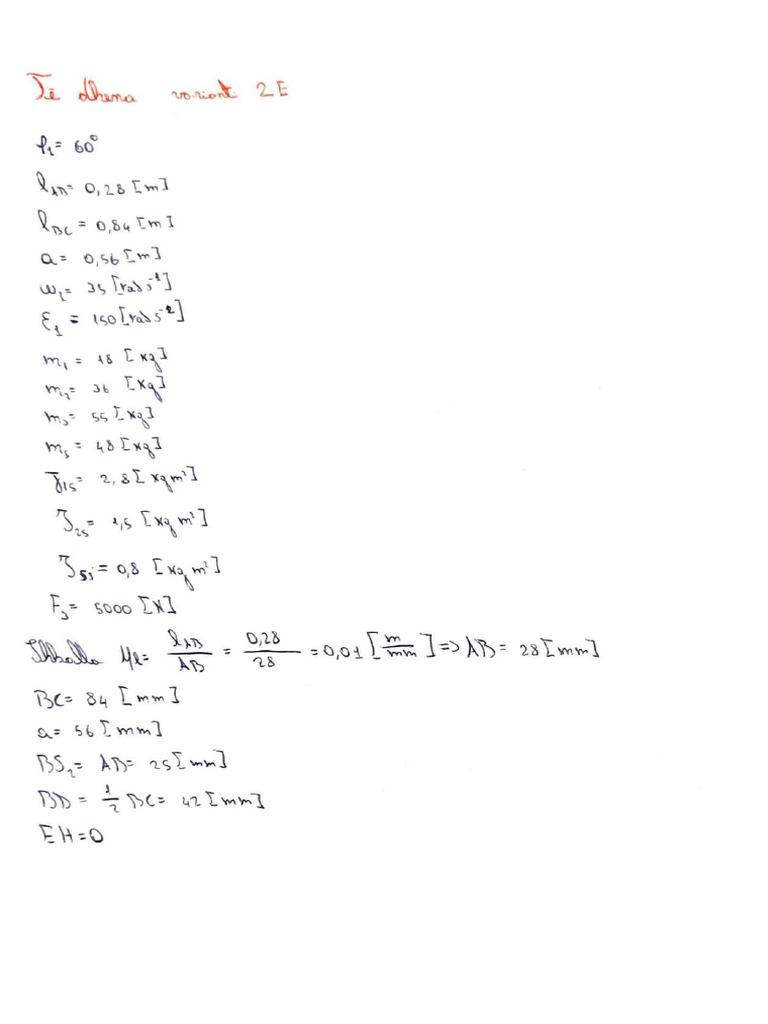 Të dhena variant 2E
φ₁= 60°
l_AB= 0,28 [m]
l_BC = 0,84 [m]
a= 0,56 [m]
ω₁= 35 [rad s⁻¹]
ε₁ = 150 [rad s⁻²]
m₁ = 18 [kg]
m₂= 36 [kg]
m₃= 55 [kg]
m₅ = 48 [kg]
J₁s= 2,8 [kg m²]
J₂s= 1,5 [kg m²]
J₅ᵢ = 0,8 [kg m²]
F₃= 5000 [N]
μl= l_AB / AB = 0,28 / 28 = 0,01 [m / mm] => AB= 28 [mm]
BC= 84 [mm]
a= 56 [mm]
BS₂= AB= 25 [mm]
BD = 1/2 BC= 42 [mm]
EH=0